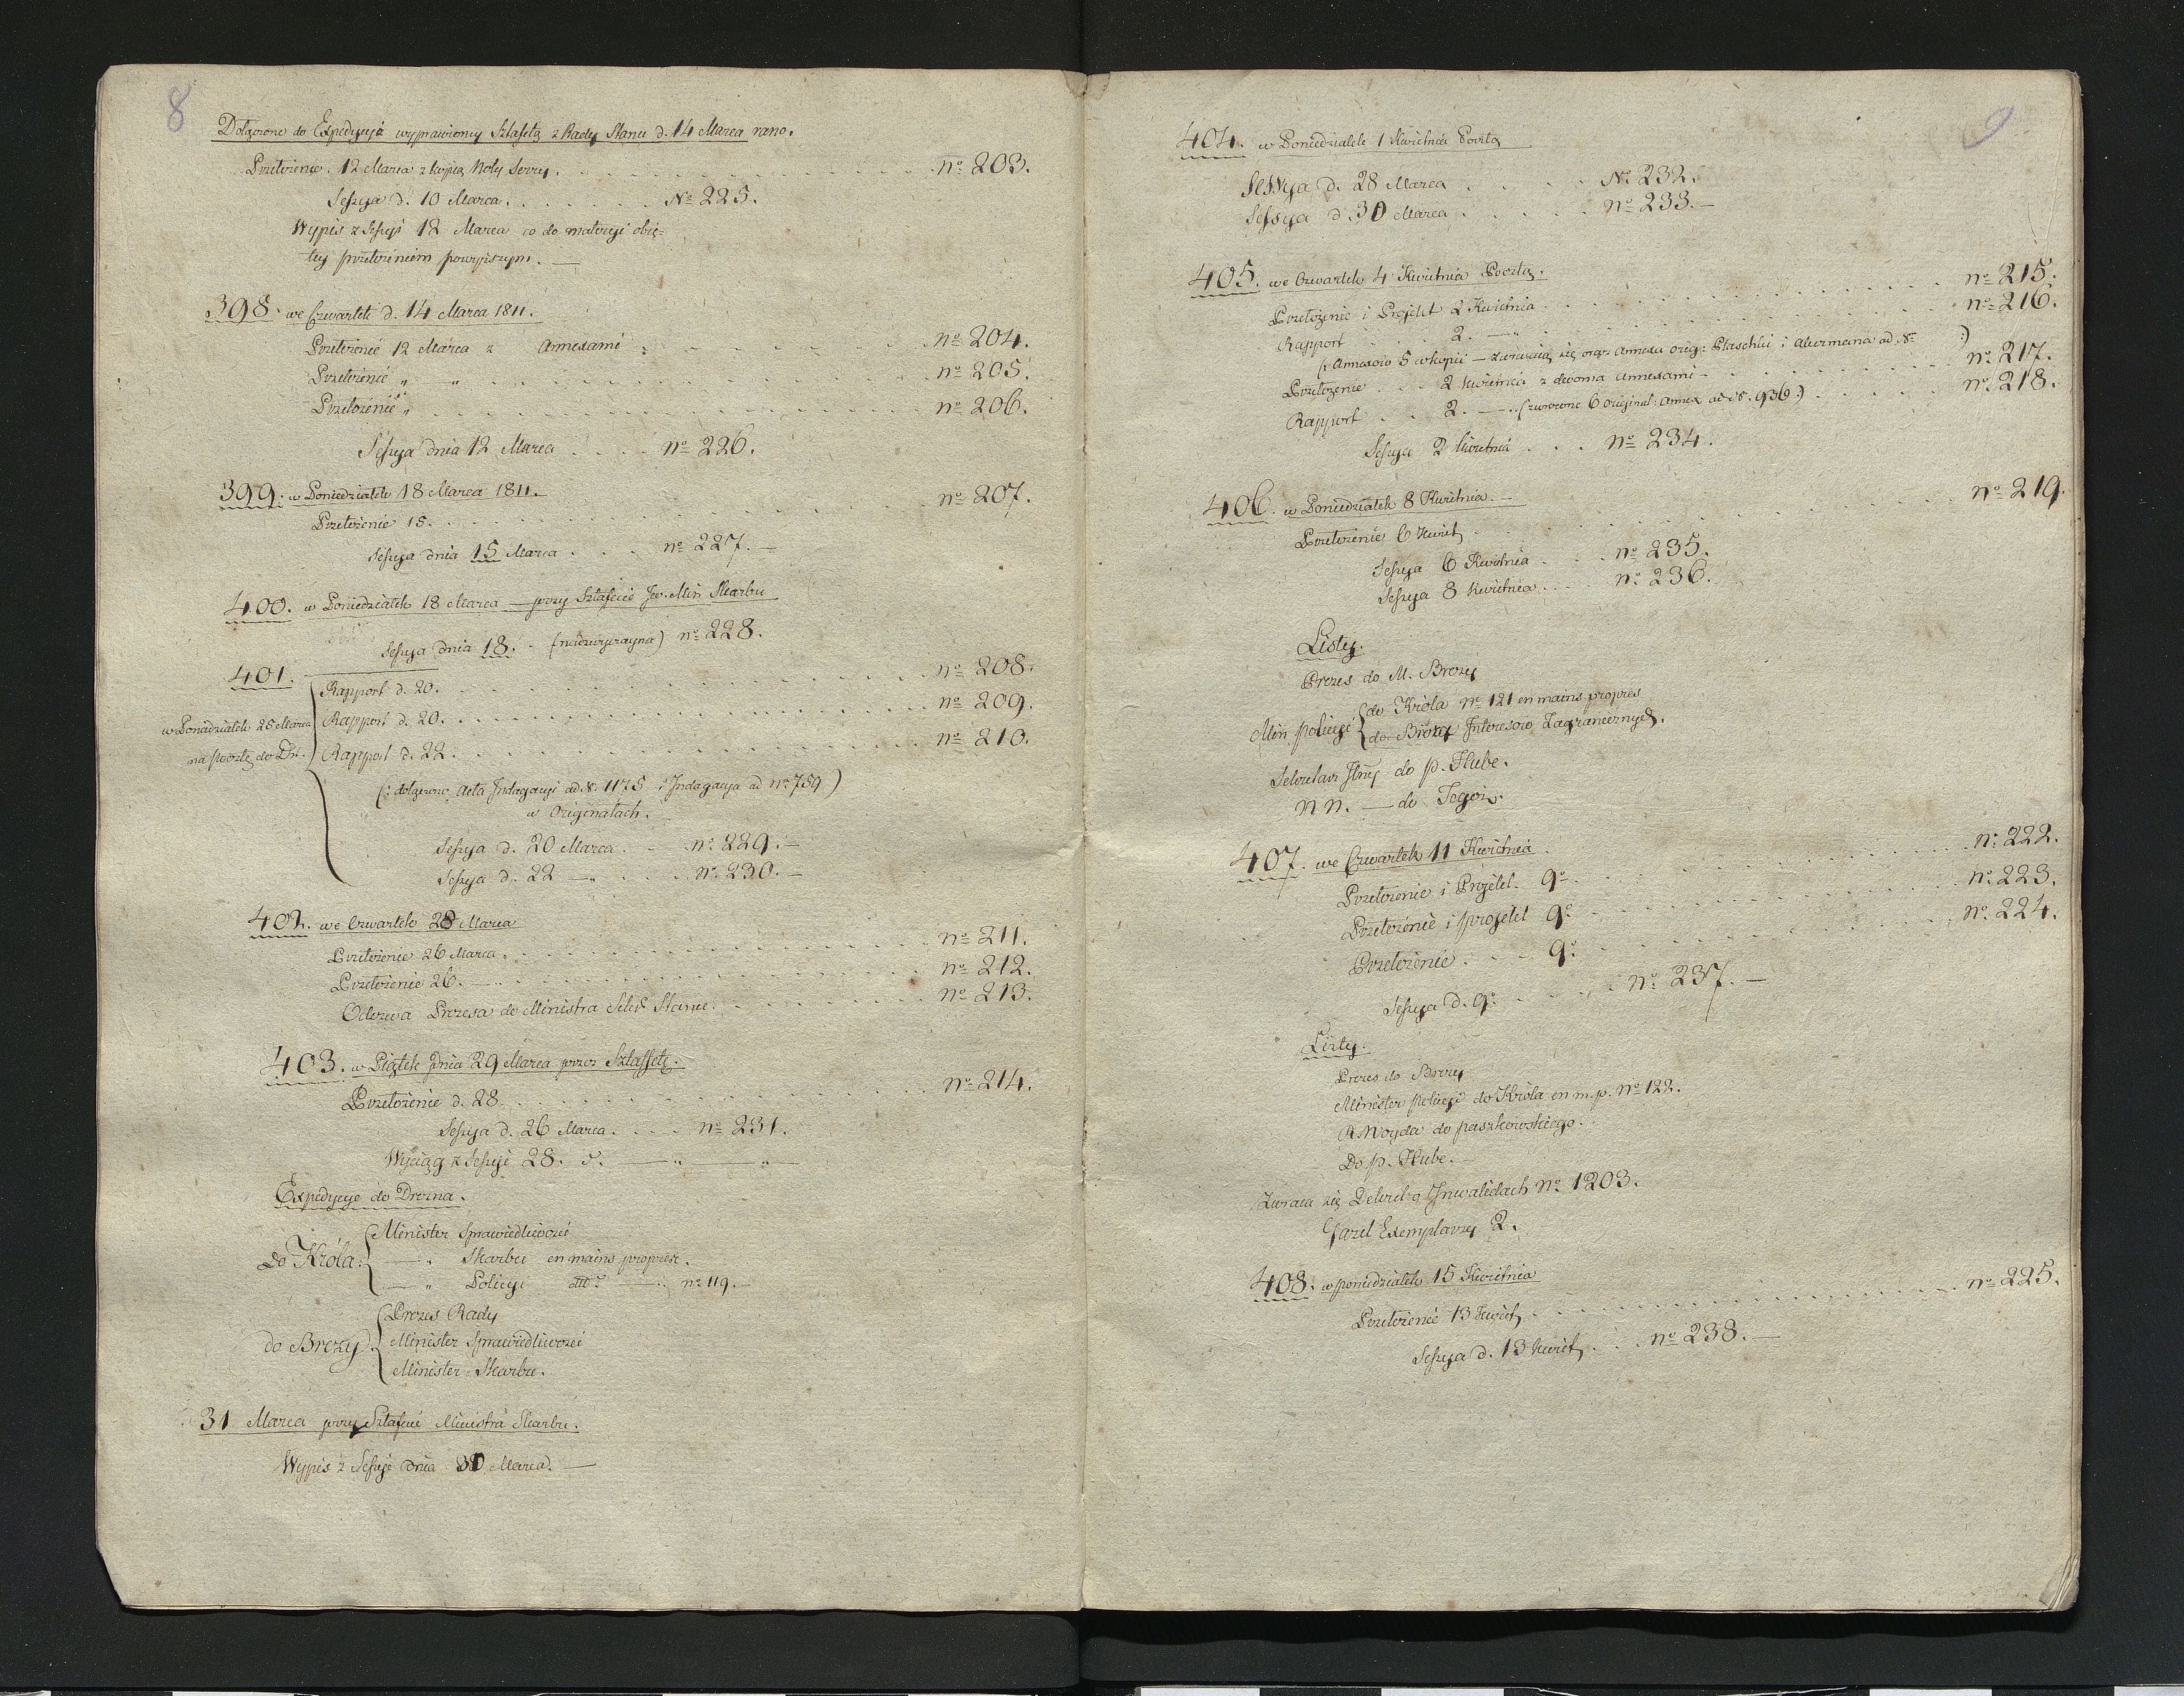 8
Dołączone do Expedycyi wyprawioney Sztafetą z Rady Stanu d. 14 Marca rano.
Przełożenie 12 Marca z kopią Noty Serry. nº 203.
Sessya d. 10 Marca. Nº 225.
Wypis z Sessyi 12 Marca co do materyi obię=
tey przełożeniem powyższym. —
398. we Czwartek d. 14 Marca 1811.
Przełożenie 12 Marca z Annexami nº 204.
Przełożenie „ — „ nº 205.
Przełożenie „ nº 206.
Sessya dnia 12 Marca nº 226.
399. w Poniedziałek 18 Marca 1811.
Przełożenie 15. nº 207.
Sessya dnia 15 Marca nº 227. —
400. w Poniedziałek 18 Marca — przy Sztafecie Jw. Min Skarbu
Sessya dnia 18. (nadzwyczayna) nº 228.
401.
w Poniedziałek 25 Marca
na pocztę do Dr.
Rapport d. 20. nº 208.
Rapport d. 20. nº 209.
Rapport d. 22. nº 210.
(: dołączono Acta Indagacyi ad N. 1175 i Indagacya ad nº 759)
w Originałach.
Sessya d. 20 Marca. nº 229. —
Sessya d. 22 — „ nº 230. —
402. we Czwartek 28 Marca
Przełożenie 26 Marca. nº 211.
Przełożenie 26. — „ nº 212.
Odezwa Prezesa do Ministra Sekr Stanu. nº 213.
403. w Piątek dnia 29 Marca przez Sztaffetę.
Przełożenie d. 28. nº 214.
Sessya d. 26 Marca. nº 231.
Wyciąg z Sessyi 28. — „ — „ —
Expedycye do Drezna.
do Króla:
Minister Sprawiedliwości
— „ Skarbu en mains propres.
— „ Policyi — nº 119. —
do Brezy
Prezes Rady
Minister Sprawiedliwości
Minister Skarbu.
31 Marca przy Sztafecie Ministra Skarbu.
Wypis z Sessyi dnia 30 Marca. —
9
404. w Poniedziałek 1 Kwietnia Pocztą
Sessya d. 28 Marca Nº 232.
Sessya d. 30 Marca nº 233. —
405. we Czwartek 4 Kwietnia Pocztą.
Przełożenie i Projekt 2 Kwietnia nº 215.
Rapport 2. — „ nº 216.
(: Annexow 5 w kopii — zwracaią się oraz Annexa orig: Płaschki i Akermana ad N. :)
Przełożenie 2 Kwietnia z dwoma annexami — nº 217.
Rapport 2. — (zwrócone 6 original: annex ad N. 936:) nº 218.
Sessya 2 Kwietnia nº 234.
406. w Poniedziałek 8 Kwietnia. —
Przełożenie 6 Kwiet nº 219.
Sessya 6 Kwietnia nº 235.
Sessya 8 Kwietnia nº 236.
Listy.
Prezes do M. Brezy
Min policyi
do Króla nº 121 en mains propres
do Brezy Interesow Zagranicznych.
Sekretarz Jlny do p. Hube.
N N. — do Tegoż.
407. we Czwartek 11 Kwietnia
Przełożenie i Projekt 9º nº 222.
Przełożenie i projekt 9º nº 223.
Przełożenie 9º nº 224.
Sessya d. 9º nº 237. —
Listy.
Prezes do Brezy
Minister Policyi do Króla en m. p. Nº 122.
R Woyda do paszkowskiego.
Do p. Hube. —
Zwraca się Dekret o Inwalidach Nº 1203.
Gazet Exemplarzy 2.
408. w poniedziałek 15 Kwietnia
Przełożenie 13 Kwiet nº 225.
Sessya d. 13 Kwiet nº 238. —